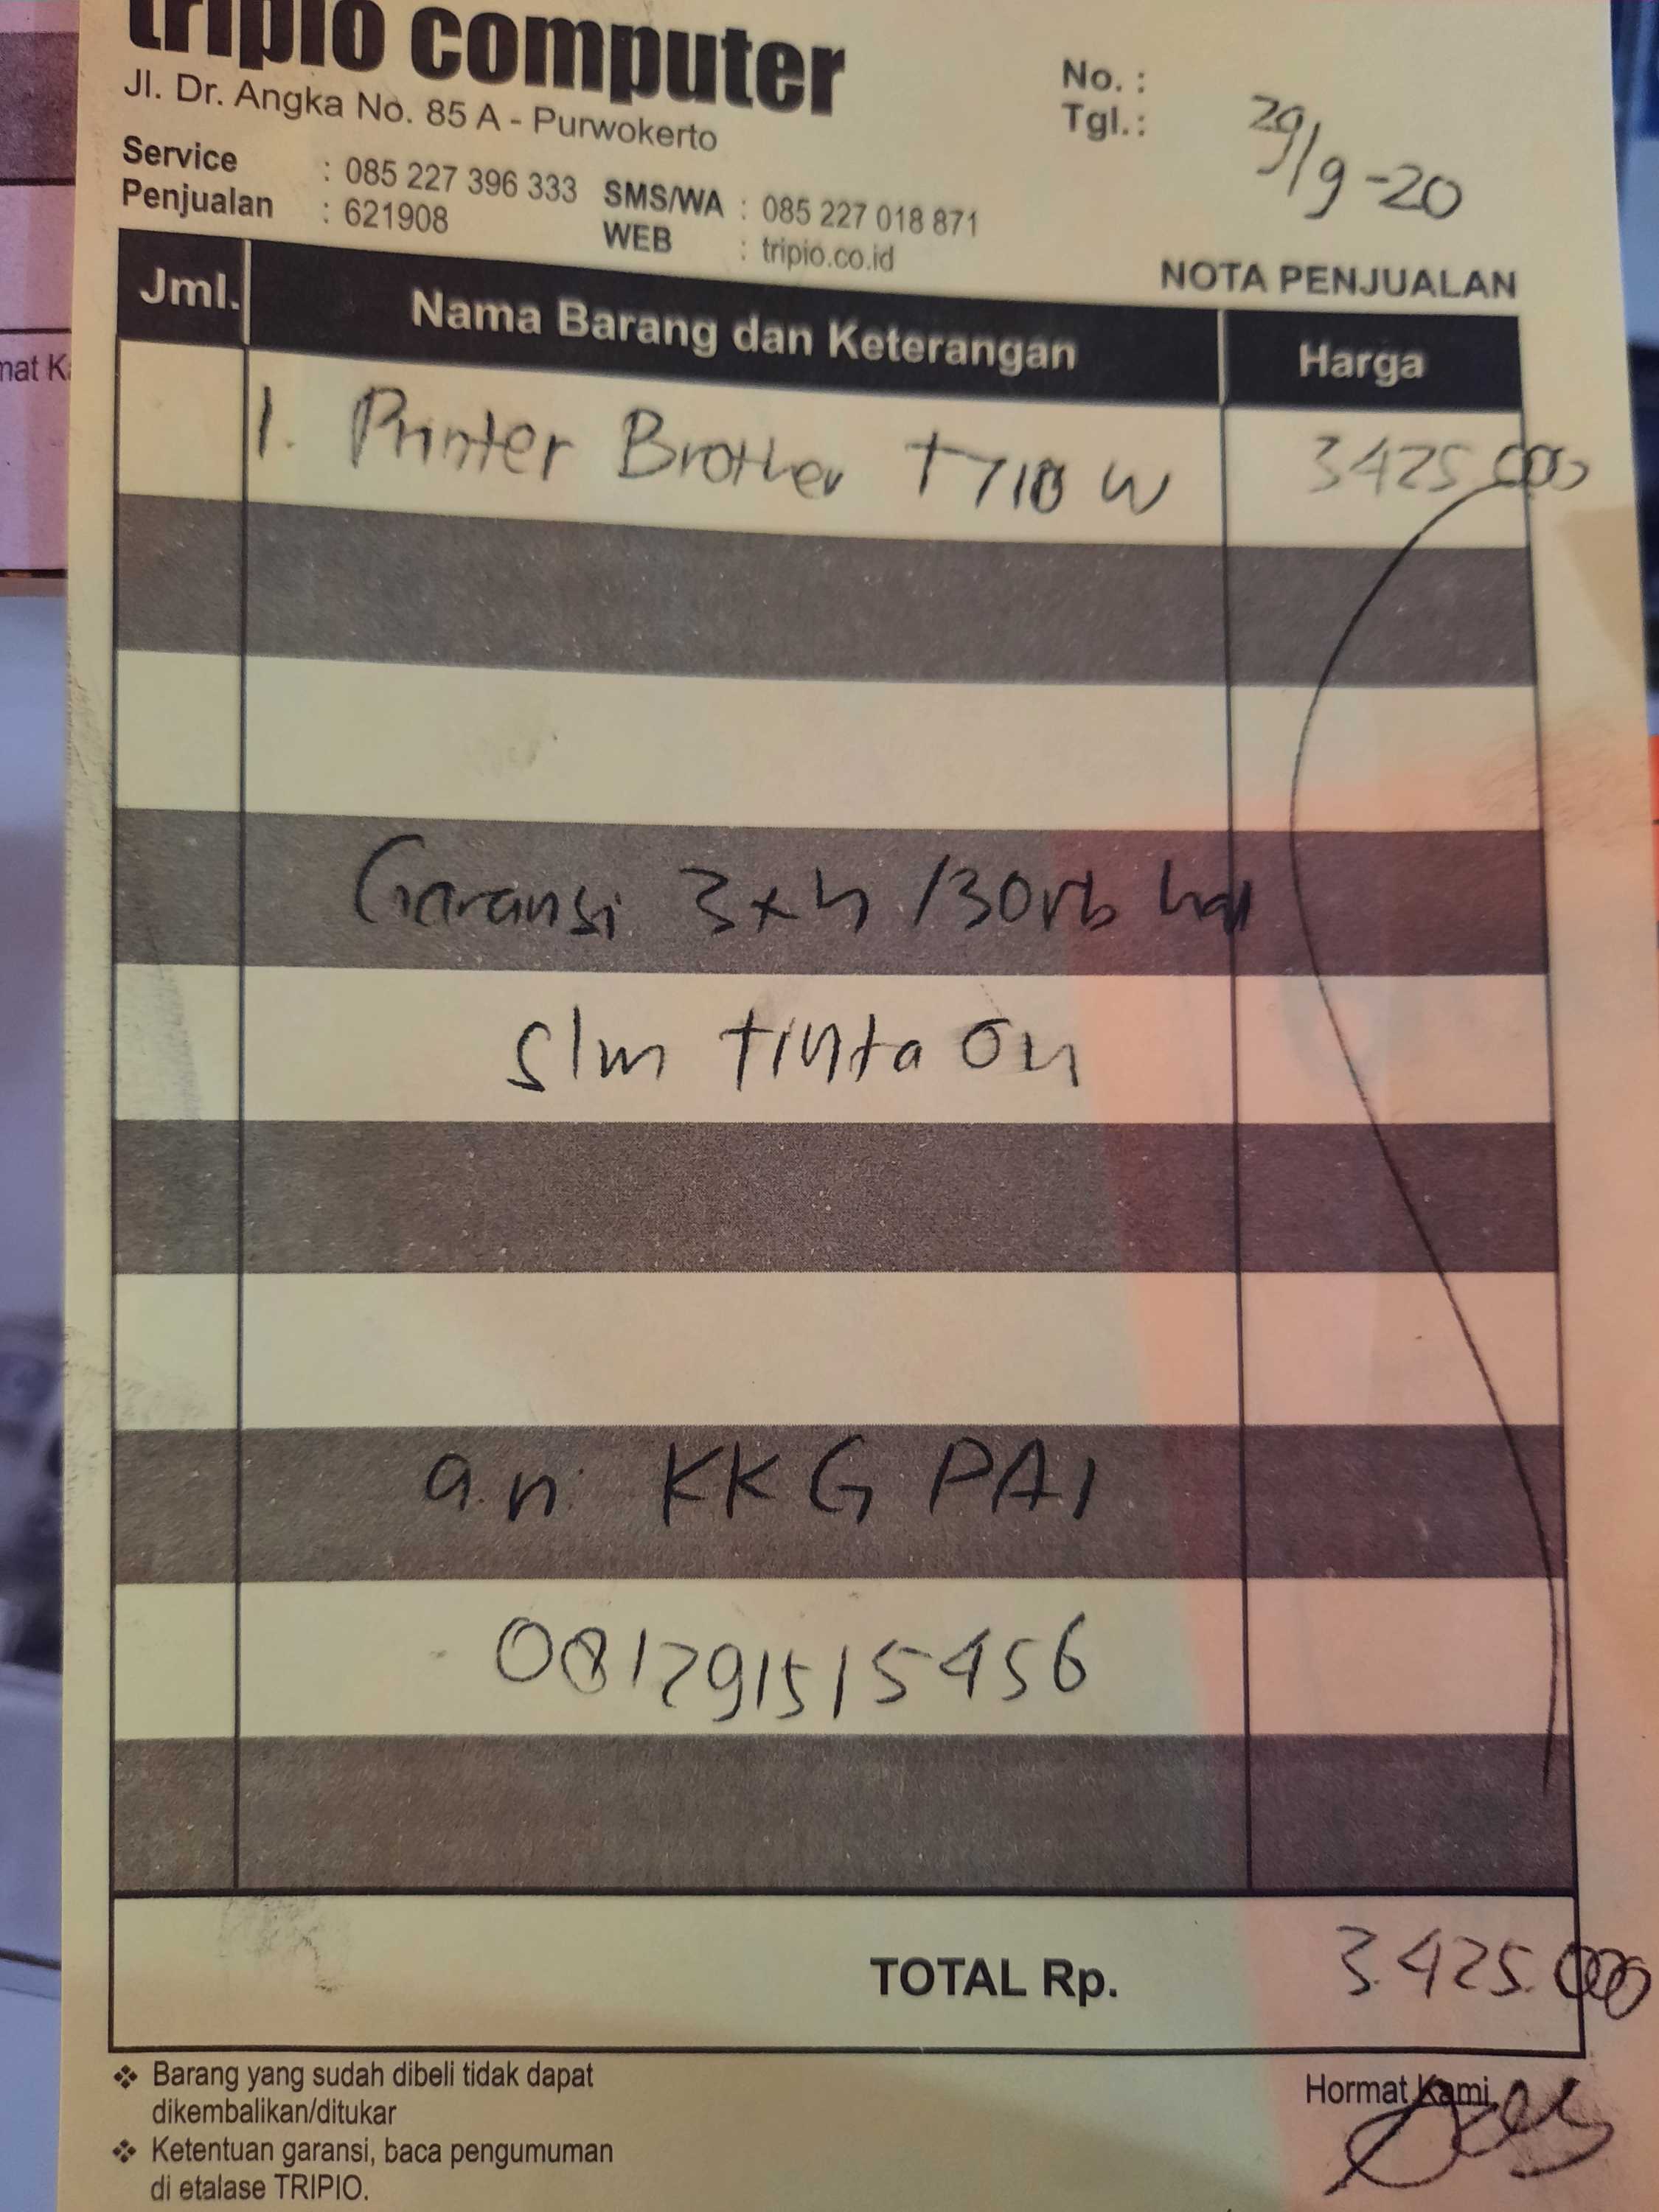 tripio computer
Jl. Dr. Angka No. 85 A - Purwokerto
Service : 085 227 396 333 SMS/WA : 085 227 018 871
Penjualan : 621908 WEB : tripio.co.id
No. :
Tgl.: 29/9-20
NOTA PENJUALAN
Jml. Nama Barang dan Keterangan Harga
1. Printer Brother T710 W 3425.000
Garansi 3xh /30rb hal
slm tinta on
a.n. KKG PAI
081291515456
TOTAL Rp. 3.425.000
❖ Barang yang sudah dibeli tidak dapat
dikembalikan/ditukar
❖ Ketentuan garansi, baca pengumuman
di etalase TRIPIO.
Hormat Kami
mat K